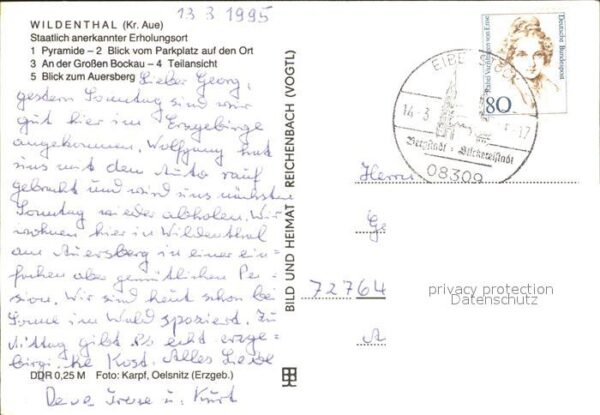 13 3 1995
WILDENTHAL (Kr. Aue)
Staatlich anerkannter Erholungsort
1 Pyramide – 2 Blick vom Parkplatz auf den Ort
3 An der Großen Bockau – 4 Teilansicht
5 Blick zum Auersberg
Lieber Georg,
gestern Sonntag sind wir
gut hier im Erzgebirge
angekommen. Wolfgang hat
uns mit dem Auto rauf
gebracht und wird uns nächsten
Sonntag wieder abholen. Wir
wohnen hier in Wildenthal
am Auersberg in einer ein-
fachen aber gemütlichen Pen-
sion. Wir sind heut schon bei
Sonne im Wald spaziert. Zu
Mittag gibt es echt erzge-
birgische Kost. Alles Liebe
DDR 0,25 M Foto: Karpf, Oelsnitz (Erzgeb.)
Deine Irene u. Kurt
BILD UND HEIMAT REICHENBACH (VOGTL)
Deutsche Bundespost
Rahel Varnhagen von Ense
80
EIBENSTOCK
14.-3.
-17
Bergstadt · Stickereistadt
08309
Herrn
Ge
72764
A
privacy protection
Datenschutz